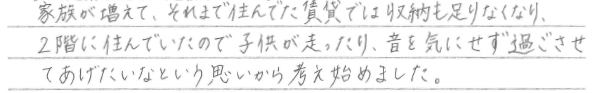 家族が増えて、それまで住んでた賃貸では収納も足りなくなり、
2階に住んでいたので子供が走ったり、音を気にせず過ごさせ
てあげたいなという思いから考え始めました。